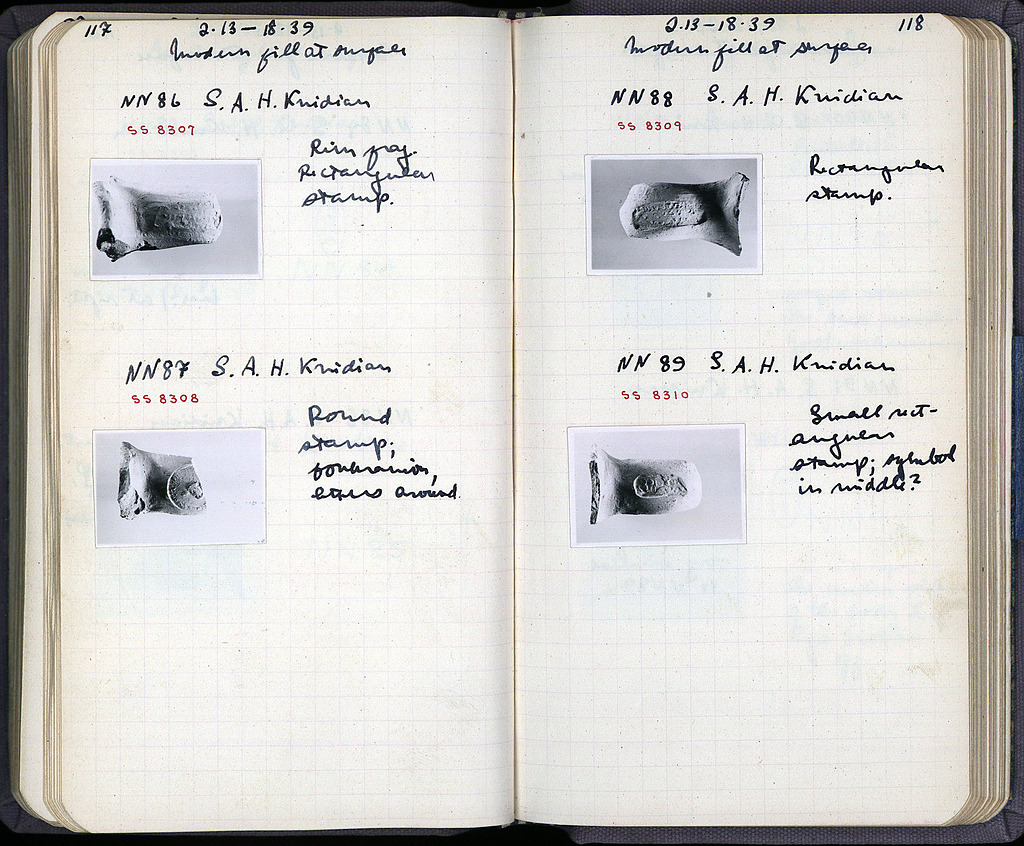 117 2.13–18.39
Modern fill at surface
NN86 S. A. H. Knidian
SS 8307
Rim frag.
Rectangular
stamp.
NN87 S. A. H. Knidian
SS 8308
Round
stamp;
boukranion,
letters around.
2.13–18.39 118
Modern fill at surface
NN88 S. A. H. Knidian
SS 8309
Rectangular
stamp.
NN89 S. A. H. Knidian
SS 8310
Small rect-
angular
stamp; symbol
in middle?